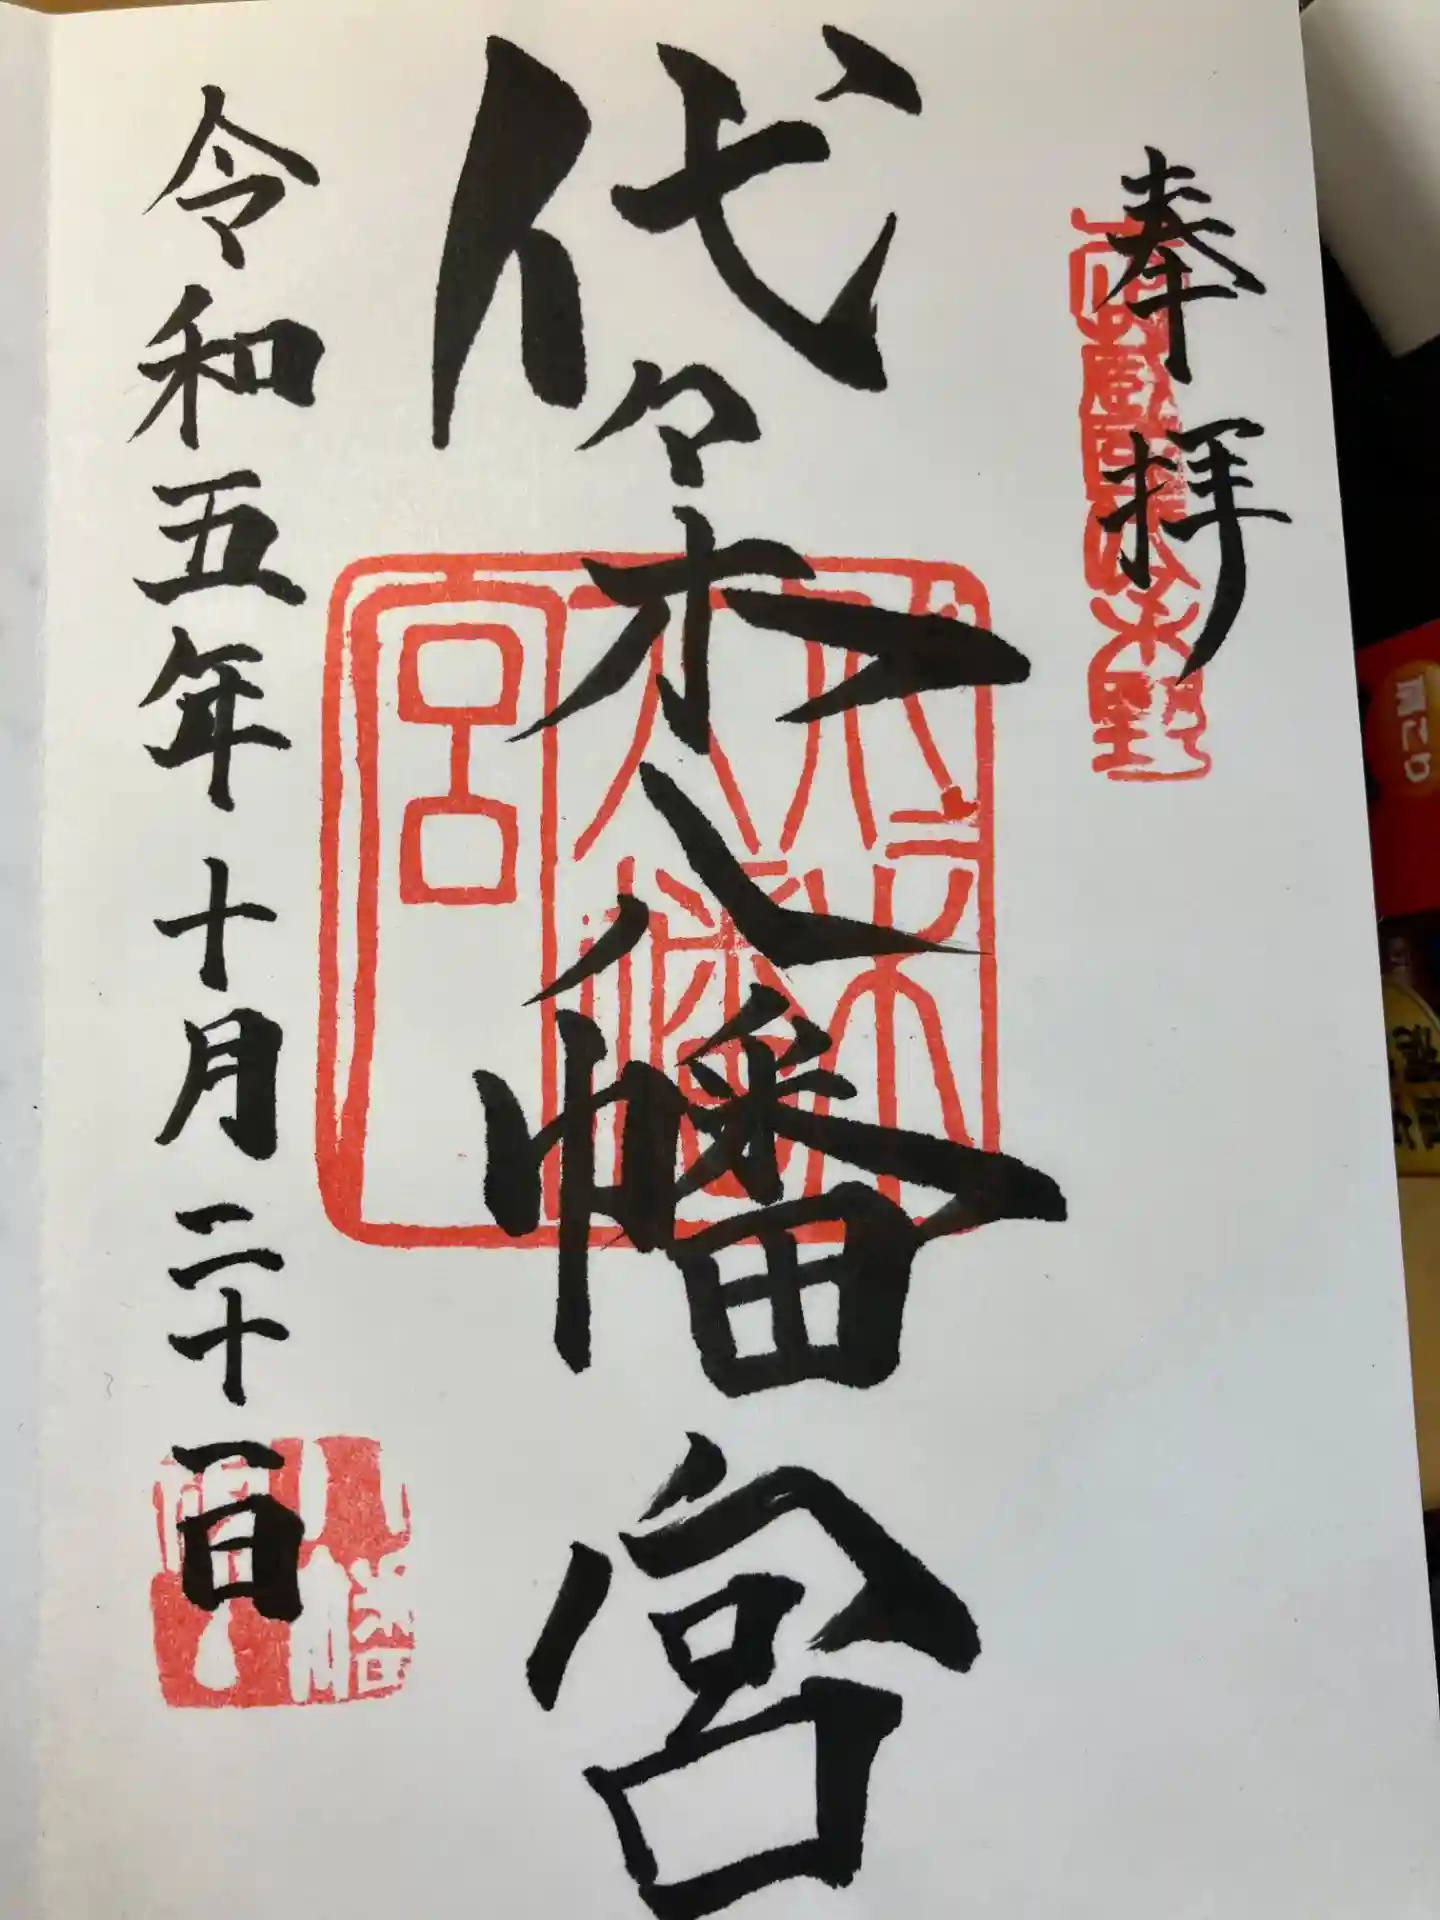 奉拝
代々木八幡宮
令和五年十月二十一日
代々木八幡宮
肩こり